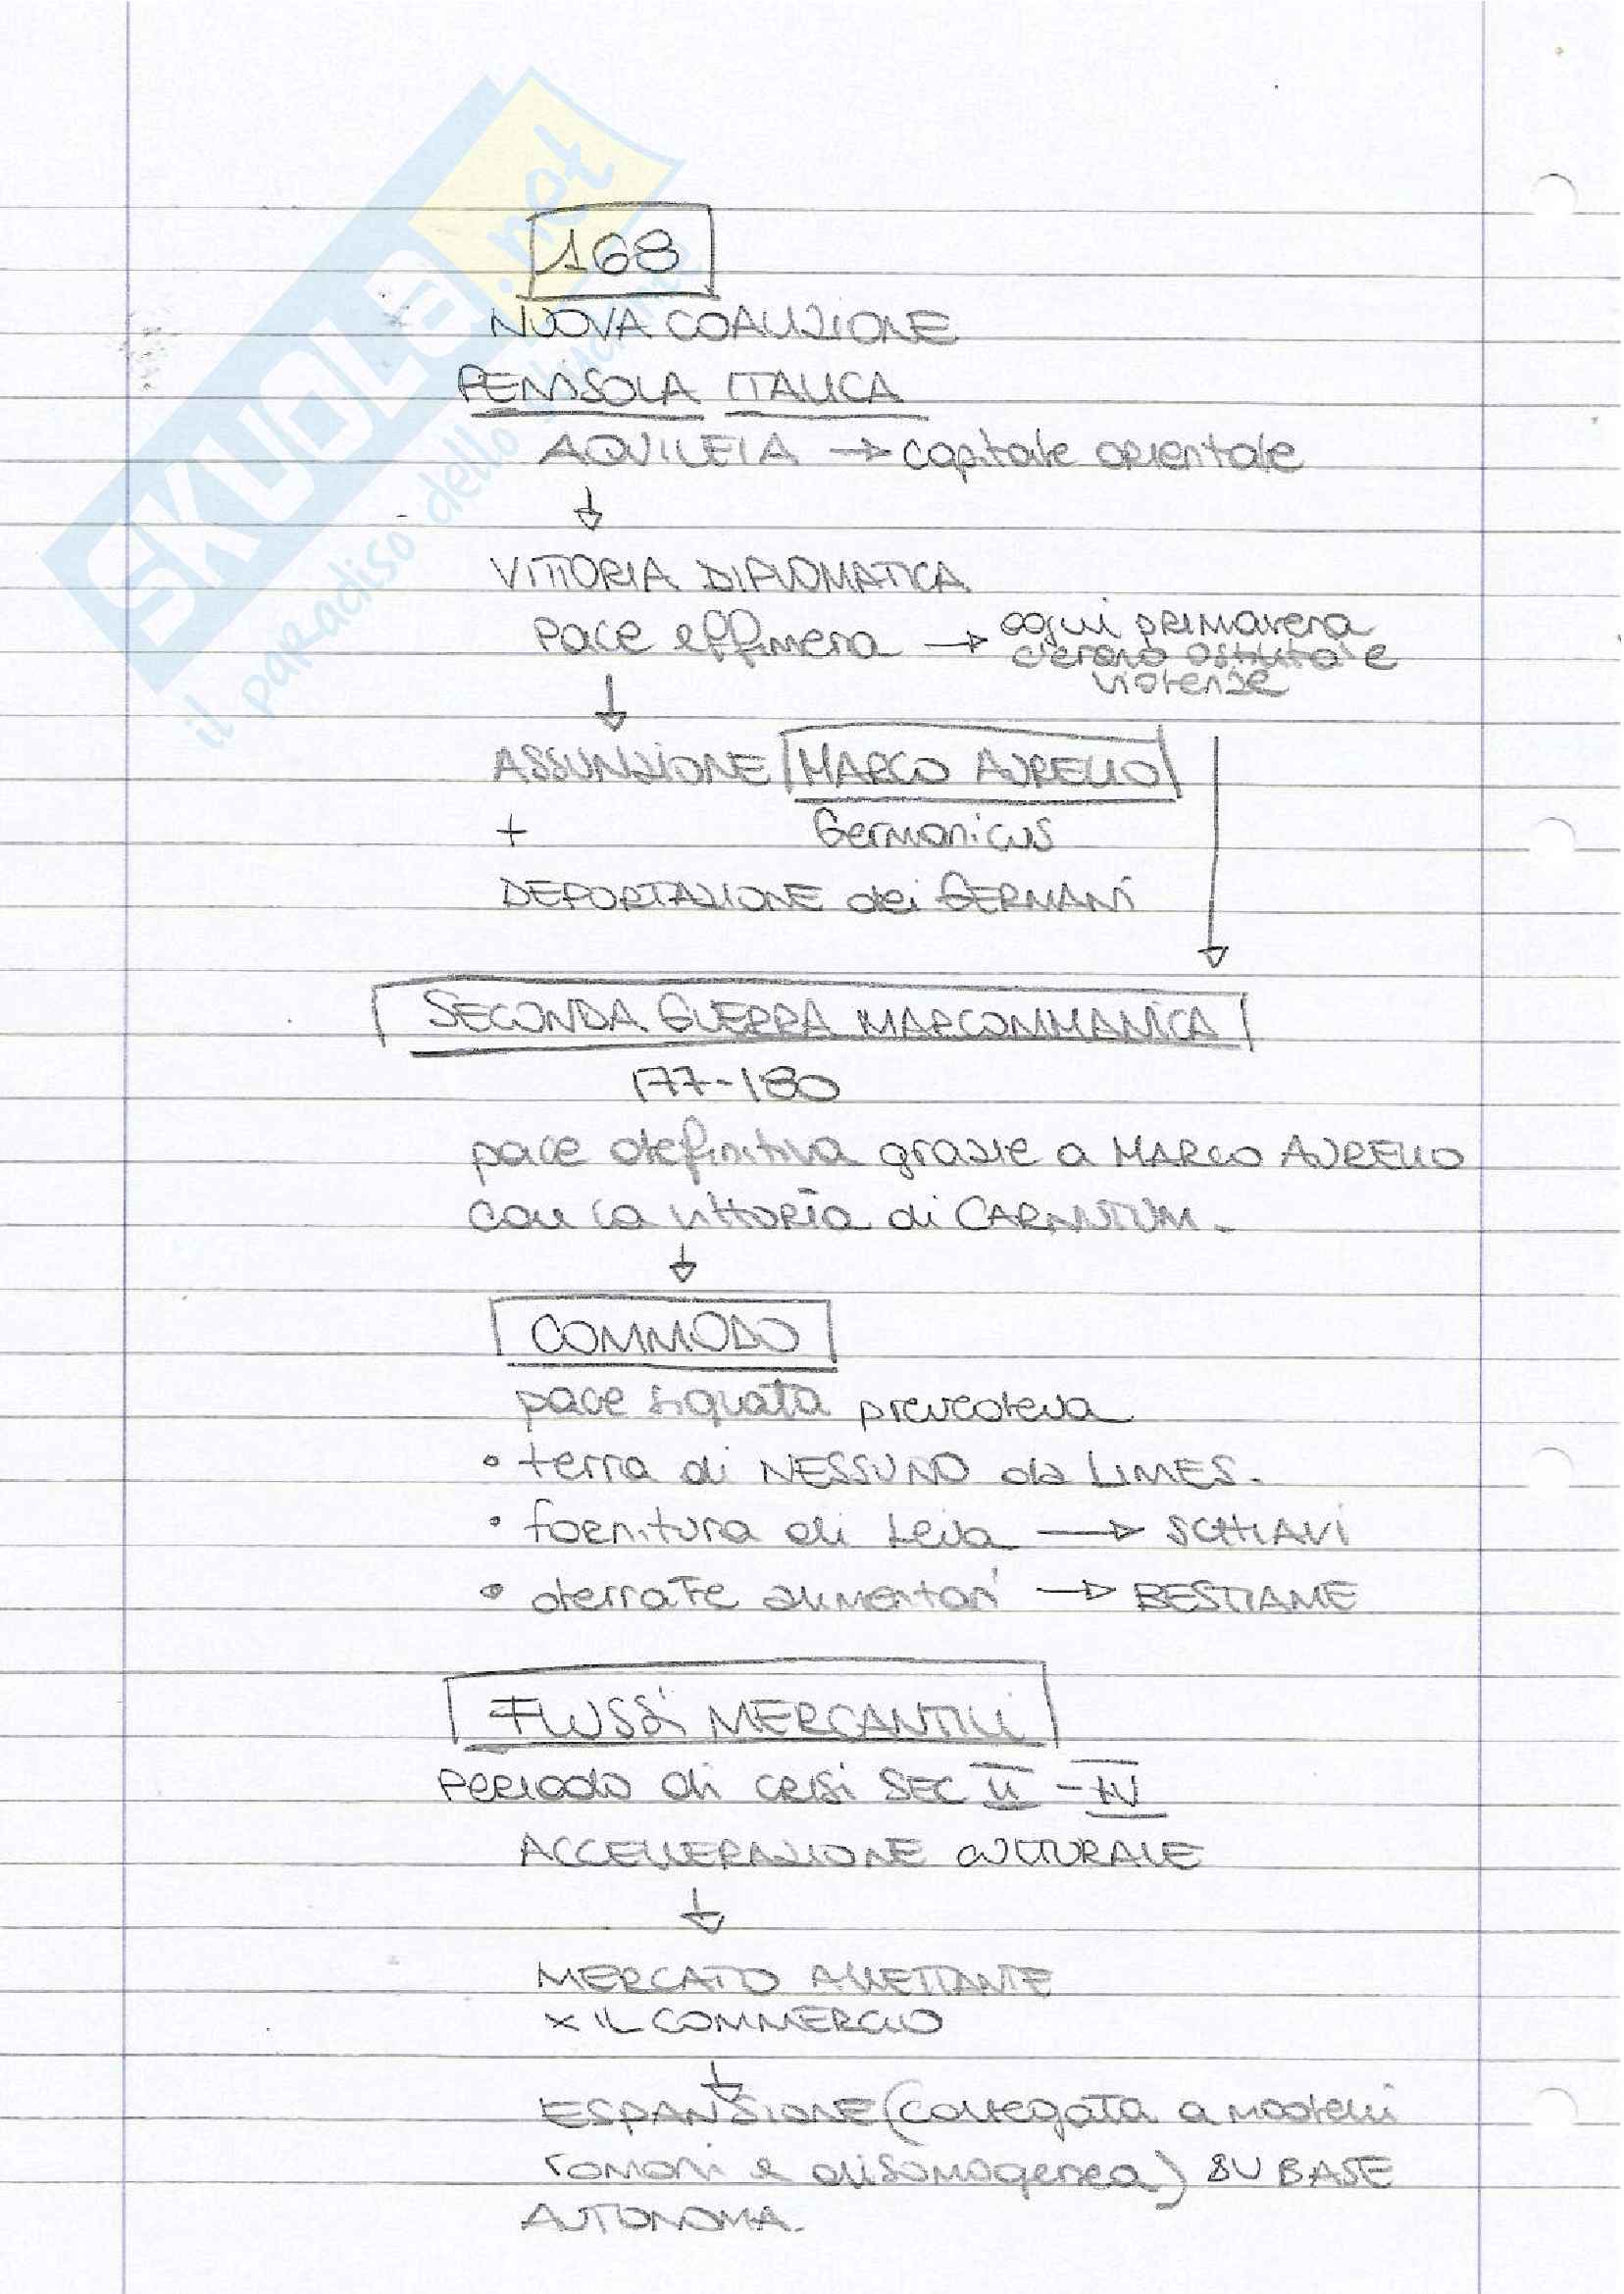 SKUOLA.net
il paradiso dello studente
168
NUOVA COALIZIONE
PENISOLA ITALICA
AQUILEIA → capitale orientale
↓
VITTORIA DIPLOMATICA
Pace effimera → ogni primavera
c'erano ostilità e
violenze
↓
ASSUNZIONE MARCO AURELIO
+ Germanicus
DEPORTAZIONE dei GERMANI
↓
SECONDA GUERRA MARCOMMANICA
177-180
pace definitiva grazie a MARCO AURELIO
con la vittoria di CARNUTUM.
↓
COMMODO
pace siguata prevedeva
• terra di NESSUNO da LIMES.
• fornitura di leva → SCHIAVI
• derrate alimentari → BESTIAME
FLUSSI MERCANTILI
Periodo di crisi SEC II - IV
ACCELLERAZIONE CULTURALE
↓
MERCATO ALLETTANTE
X IL COMMERCIO
↓
ESPANSIONE (collegata a modelli
romani e disomogenea) SU BASE
AUTONOMA.